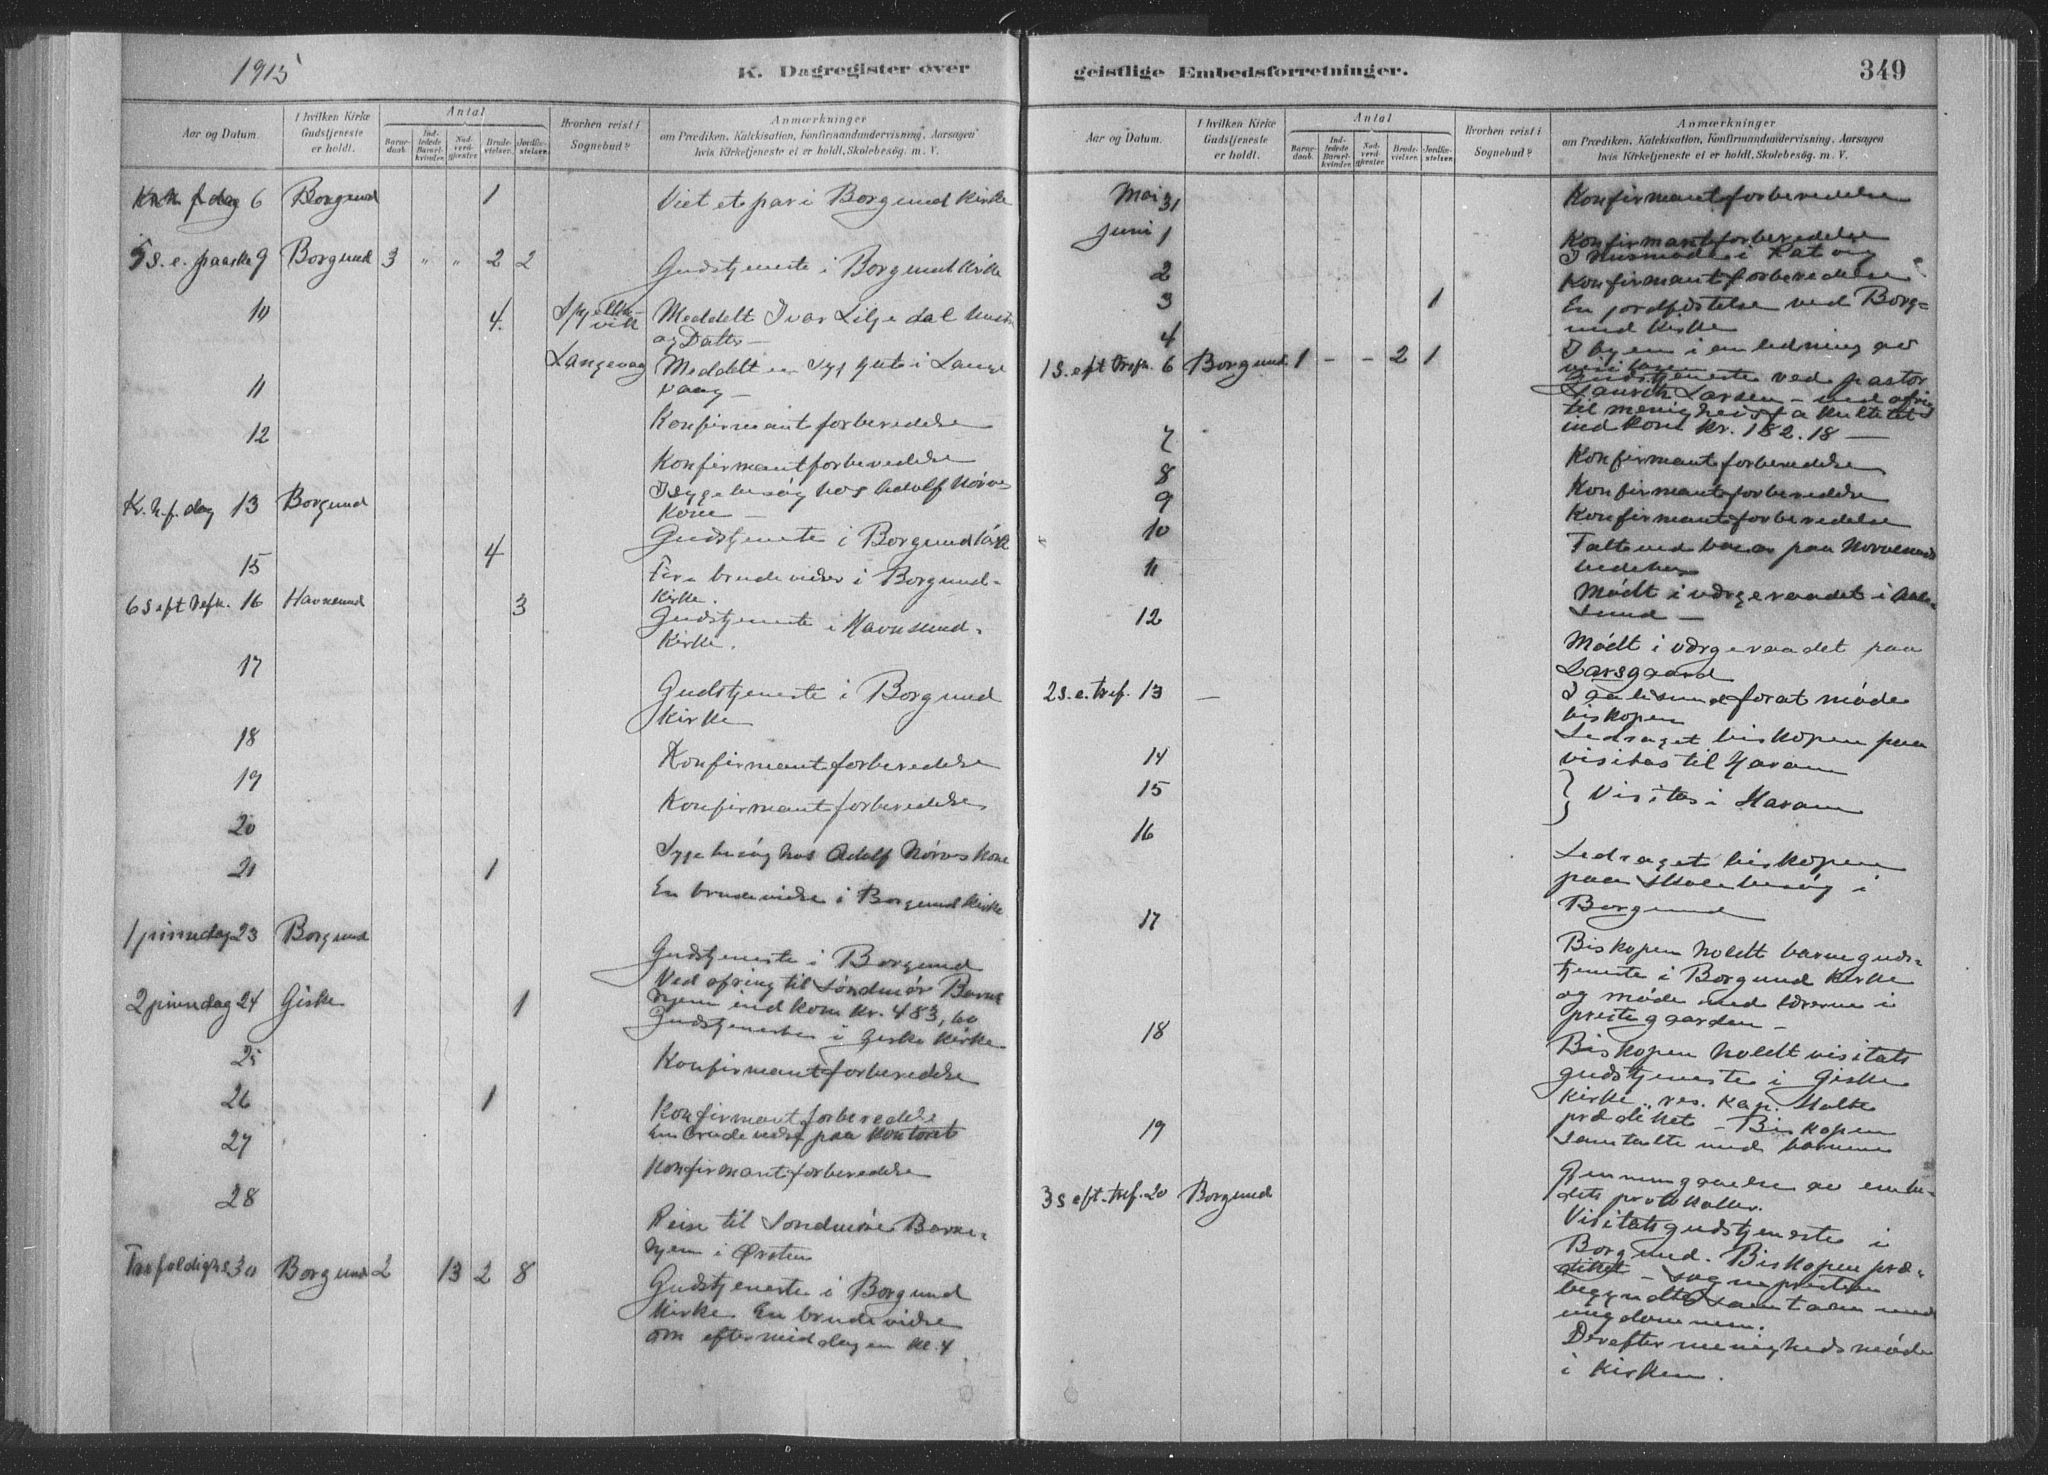 1915
K. Dagregister over
Aar og Datum.
I hvilken Kirke Gudstjeneste er holdt.
Antal
Barnedaab.
Indledede Barselkvinder.
Nadverdgjester.
Brudevielser.
Jordfæstelser.
Hvorhen reist i Sognebud?
Anmærkninger
om Prædiken, Katekisation, Konfirmandundervisning, Aarsagen
hvis Kirketjeneste ei er holdt, Skolebesøg. m. V.
6 Borgund 1 Viet et par i Borgund Kirke
5 s. e. paaske 9 Borgund 3 " " 2 2 Gudstjeneste i Borgund Kirke
10 4. Meddelt Ivar Liljedal hustru
og Datter —
Langevag Meddelt en syg gut i Lange
vaag —
11
Konfirmantforberedelse
12
Konfirmantforberedelse
Sygebesøg hos Adolf Nørves
Kone —
Kr. h. f. dag 13 Borgund
Gudstjeneste i Borgund Kirke
15 4
Fire brudevidser i Borgund-
Kirke.
6 s eft 16 Havnsund 3
Gudstjeneste i Havnsund-
Kirke.
17
Gudstjeneste i Borgund
Kirke
18
Konfirmantforberedelse
19
Konfirmantforberedelse
20
Sygebesøg hos Adolf Nørves Kone
21 1
En brudevidse i Borgund Kirke
1 pinsedag 23 Borgund
Gudstjeneste i Borgund
Ved ofring til Søndmør Barne
hjem indkom kr. 483,60
2 pinsdag 24 Giske 1
Gudstjeneste i Giske Kirke
25
Konfirmantforberedelse
26 1
Konfirmantforberedelse
En brudevidse paa Kontoret
27
Konfirmantforberedelse
28
Reise til Søndmøre Barne-
hjem i Ørsten
30 Borgund 2 13 2 8
Gudstjeneste i Borgund
Kirke En brudevidse
om eftermiddagen kl. 4
geistlige Embedsforretninger.
349
Aar og Datum.
I hvilken Kirke Gudstjeneste er holdt.
Antal
Barnedaab.
Indledede Barselkvinder.
Nadverdgjester.
Brudevielser.
Jordfæstelser.
Hvorhen reist i Sognebud?
Anmærkninger
om Prædiken, Katekisation, Konfirmandundervisning, Aarsagen
hvis Kirketjeneste ei er holdt, Skolebesøg. m. V.
Mai 31 Konfirmantforberedelse
Juni 1
Konfirmantforberedelse
2
Konfirmantforberedelse
3 1
En jordfæstelse ved Borg-
und Kirke
4
I byen i anledning av
visitasen
1 S. eft Trefn. 6 Borgund 1 - - 2 1
Gudstjeneste ved pastor
Larsen — med ofring
til menighedsfakultetet
indkom kr. 182.18 —
7
Konfirmantforberedelse
8
Konfirmantforberedelse
9
Konfirmantforberedelse
10
Talte ved basar paa
bedehus
11
Mødt i værgeraadet i Aale-
sund —
12
Mødt i værgeraadet paa
Larsgaard
2 s. e. tref. 13 —
I Aalesund forat møde
biskopen
14
Ledsaget biskopen paa
visitas til Haram
15
} Visitas i Haram
16
Ledsaget biskopen
paa skolebesøg i
Borgund
17
Biskopen holdt barneguds-
tjeneste i Borgund Kirke
og møde med lærerne i
prestegaarden —
18
Biskopen holdt visitats
gudstjeneste i Giske
Kirke, res. kap.
prædiket — Biskopen
samtalte med børnene
19
Gjennemgaaelse av embe-
dets protokoller.
3 s eft. tref. 20 Borgund
Visitatsgudstjeneste i
Borgund. Biskopen præ-
diket — sognepresten
begyndte samtalen med
ungdommen.
Derefter menighedsmøde
i Kirken.